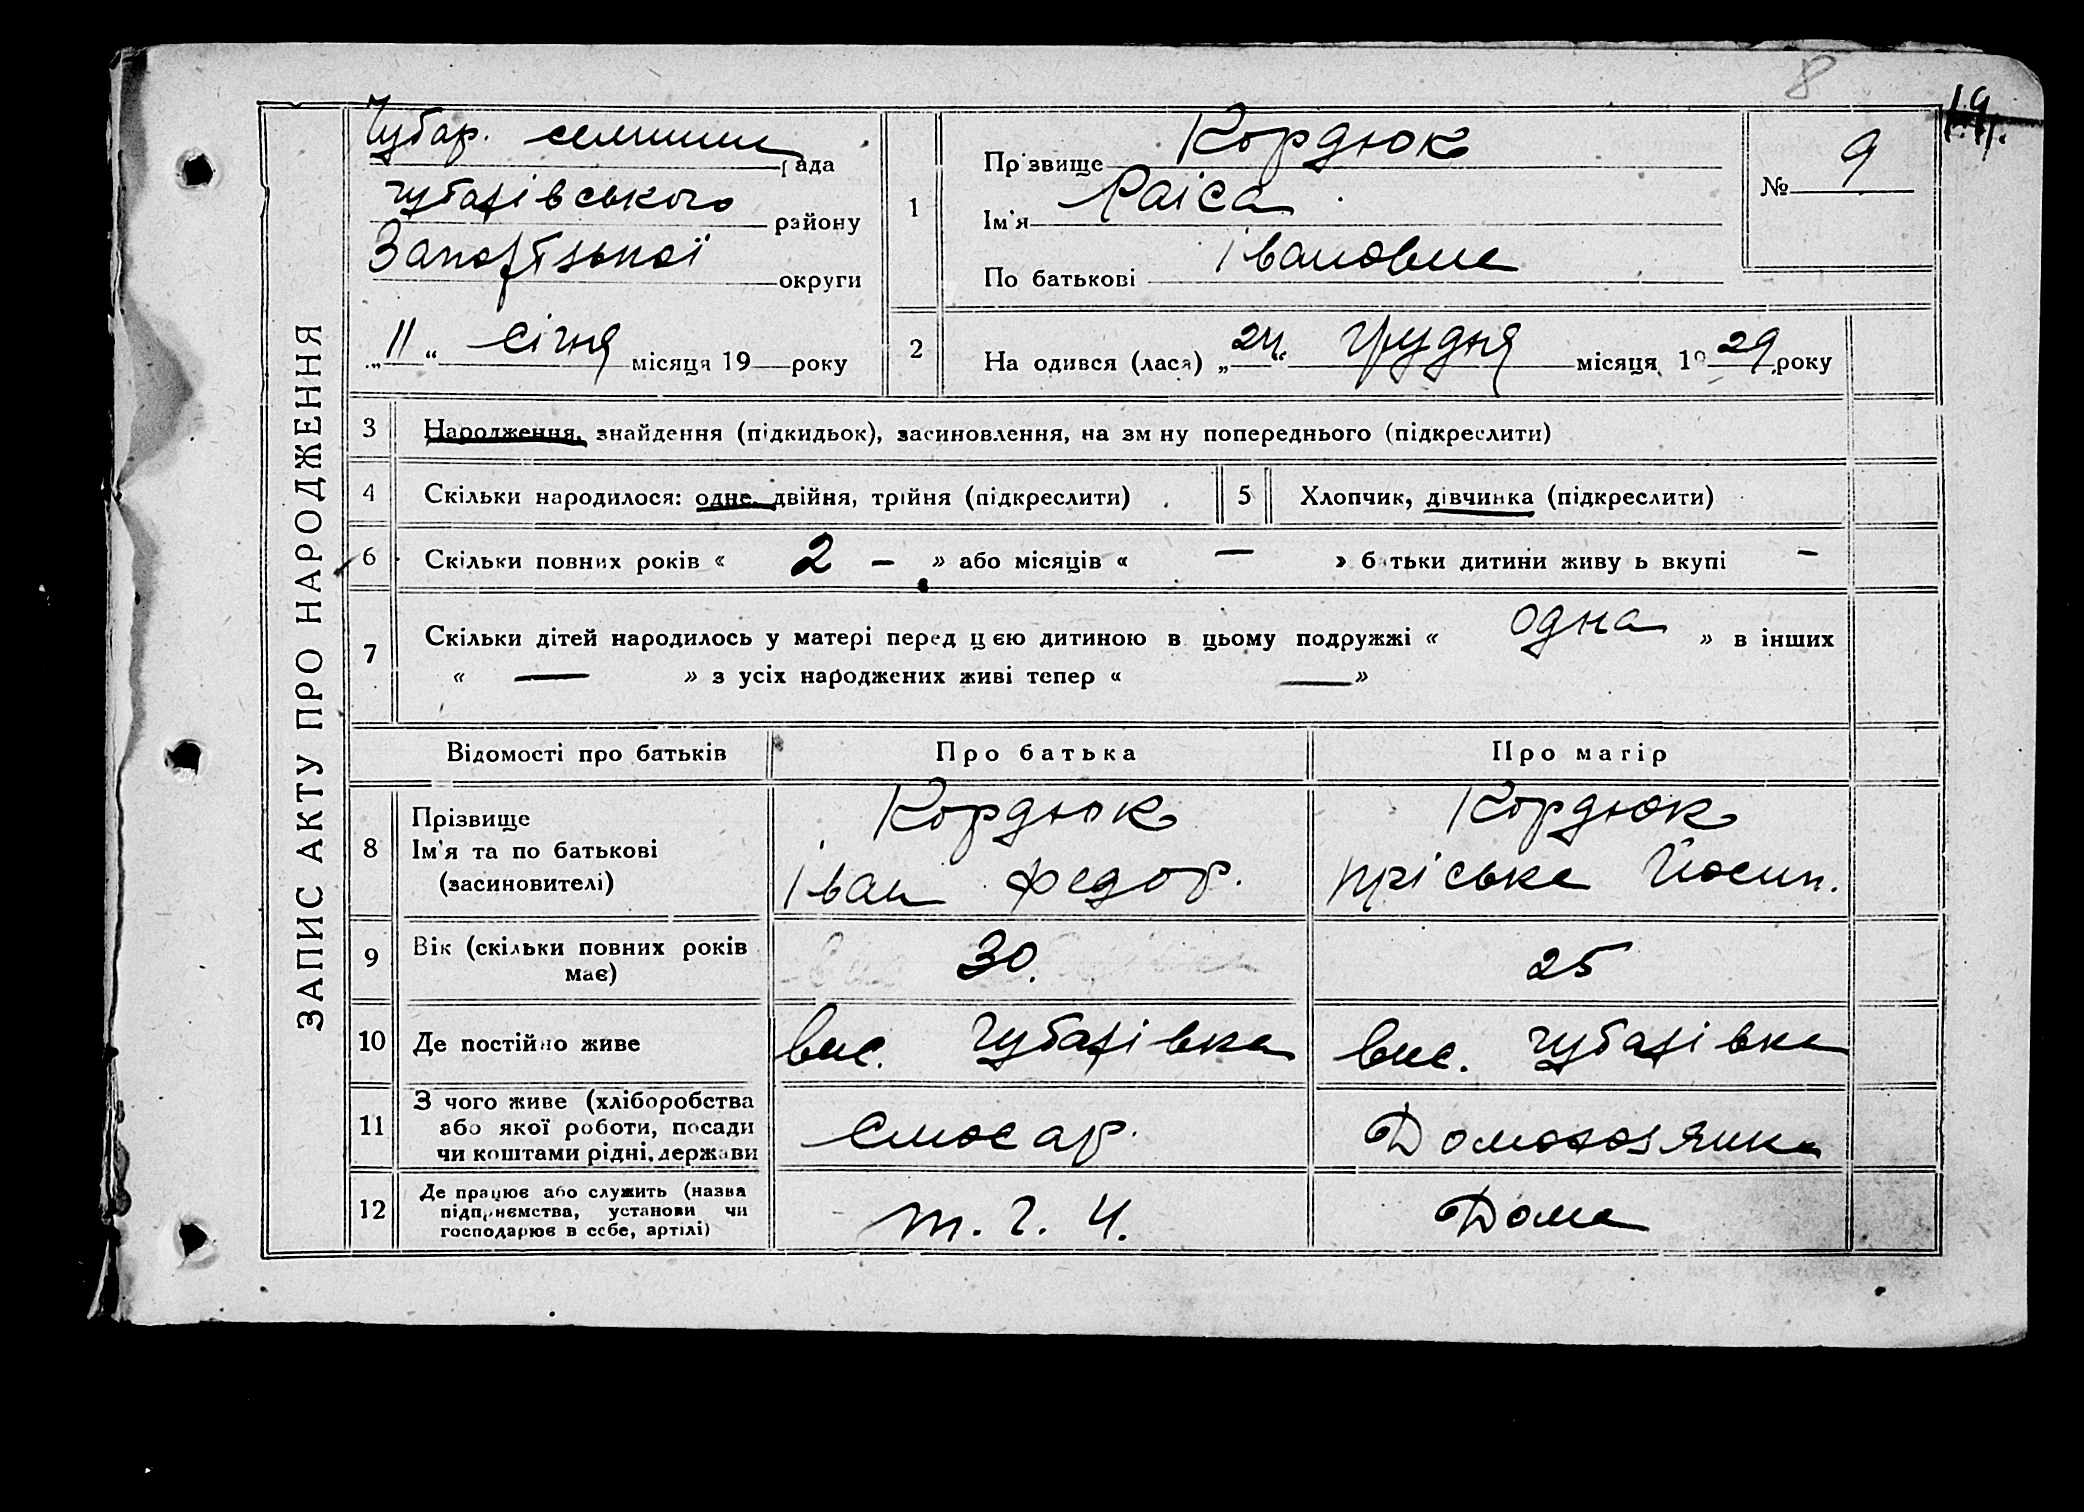 8
19.
ЗАПИС АКТУ ПРО НАРОДЖЕННЯ
Чубар. селищна рада
Чубарівського району
Запорізької округи
„11“ січня місяця 19 року
1
Прізвище Кордюк
Ім'я Раіса
По батькові Івановна
№ 9
2
Народився (лася) „24“ грудня місяця 1929 року
3 Народження, знайдення (підкидьок), засиновлення, на зміну попереднього (підкреслити)
4 Скільки народилося: одне, двійня, трійня (підкреслити)
5 Хлопчик, дівчинка (підкреслити)
6 Скільки повних років « 2 – » або місяців « — » батьки дитини живуть вкупі –
7 Скільки дітей народилось у матері перед цією дитиною в цьому подружжі « одна » в інших
« — » з усіх народжених живі тепер « — »
Відомості про батьків Про батька Про матір
8 Прізвище
Ім'я та по батькові
(засиновителі)
Кордюк
Іван Федор.
Кордюк
Пріська Йосип.
9 Вік (скільки повних років
має)
30.
25
10 Де постійно живе
вис. Чубарівка
вис. Чубарівка
11 З чого живе (хліборобства
або якої роботи, посади
чи коштами рідні, держави
Слюсар.
Домохозяйка
12 Де працює або служить (назва
підприємства, установи чи
господарює в себе, артілі)
Дома